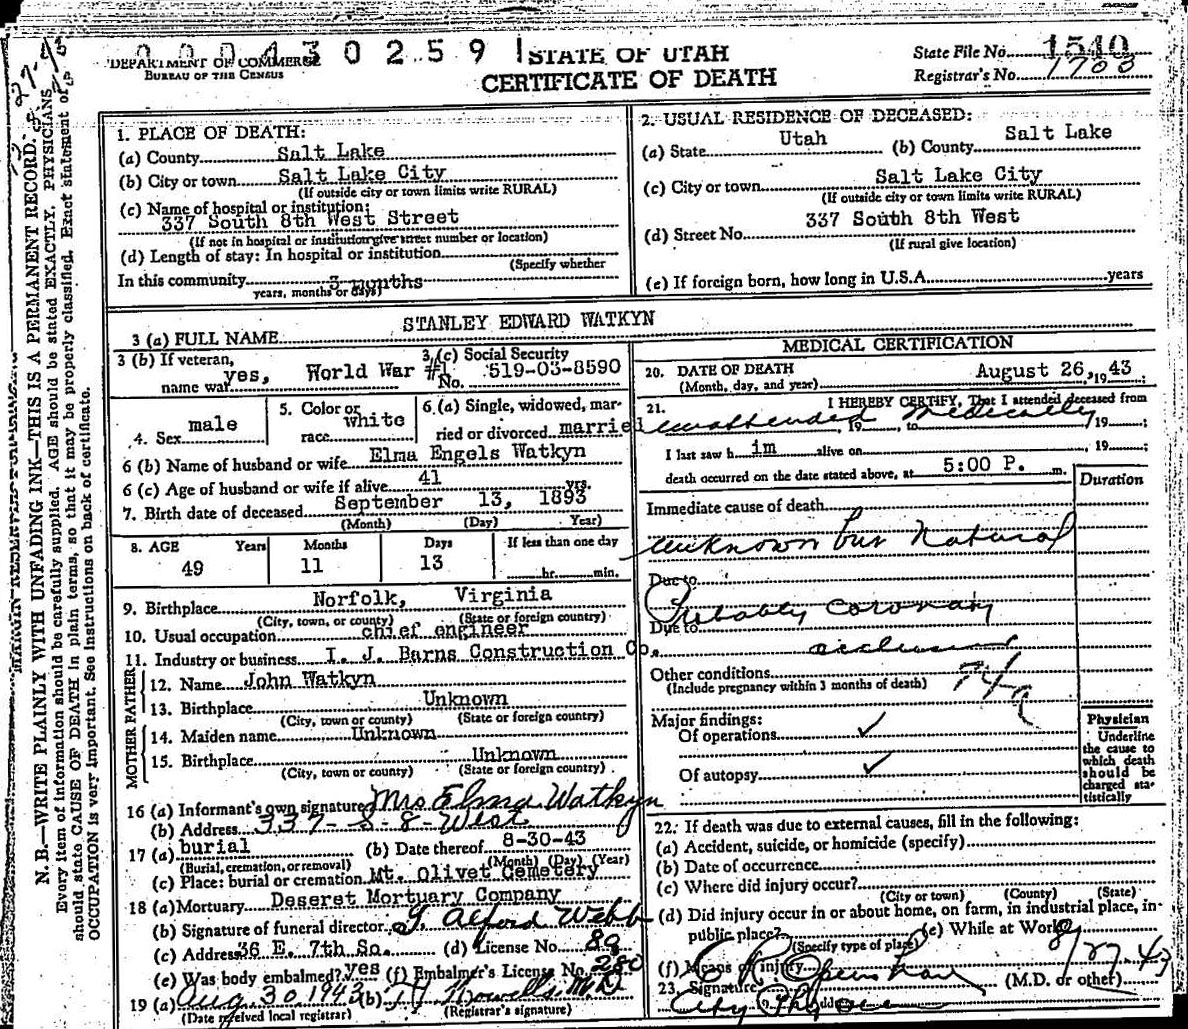 0 0 0 4 3 0 2 5 9
DEPARTMENT OF COMMERCE
BUREAU OF THE CENSUS
STATE OF UTAH
CERTIFICATE OF DEATH
State File No. 1540
Registrar's No. 1703
N. B.—WRITE PLAINLY WITH UNFADING INK—THIS IS A PERMANENT RECORD.
Every item of information should be carefully supplied. AGE should be stated EXACTLY. PHYSICIANS
should state CAUSE OF DEATH in plain terms, so that it may be properly classified. Exact statement of
OCCUPATION is very important. See instructions on back of certificate.
1. PLACE OF DEATH:
(a) County Salt Lake
(b) City or town Salt Lake City
(If outside city or town limits write RURAL)
(c) Name of hospital or institution:
337 South 8th West Street
(If not in hospital or institution give street number or location)
(d) Length of stay: In hospital or institution
(Specify whether
In this community 3 months
years, months or days)
2. USUAL RESIDENCE OF DECEASED:
(a) State Utah (b) County Salt Lake
(c) City or town Salt Lake City
(If outside city or town limits write RURAL)
337 South 8th West
(d) Street No.
(If rural give location)
(e) If foreign born, how long in U.S.A. years
3 (a) FULL NAME STANLEY EDWARD WATKYN
3 (b) If veteran, name war yes, World War #1
3. (c) Social Security No. 519-03-8590
4. Sex male
5. Color or race white
6. (a) Single, widowed, married or divorced married
6 (b) Name of husband or wife Elma Engels Watkyn
6 (c) Age of husband or wife if alive 41 yrs.
7. Birth date of deceased September 13, 1893
(Month) (Day) Year)
8. AGE Years Months Days If less than one day
49 11 13 hr. min.
9. Birthplace Norfolk, Virginia
(City, town, or county) (State or foreign country)
10. Usual occupation chief engineer
11. Industry or business I. J. Barns Construction Co.
FATHER
12. Name John Watkyn
13. Birthplace Unknown
(City, town or county) (State or foreign country)
MOTHER
14. Maiden name Unknown
15. Birthplace Unknown
(City, town or county) (State or foreign country)
16 (a) Informant's own signature Mrs Elma Watkyn
(b) Address 337-S-8-West
17 (a) burial (b) Date thereof 8-30-43
(Burial, cremation, or removal) (Month) (Day) (Year)
(c) Place: burial or cremation Mt. Olivet Cemetery
18 (a) Mortuary Deseret Mortuary Company
(b) Signature of funeral director Alford Webb
(c) Address 36 E. 7th So. (d) License No. 89
(e) Was body embalmed? yes (f) Embalmer's License No. 280
19 (a) Aug 30 1943 (b) Howells M.D.
(Date received local registrar) (Registrar's signature)
MEDICAL CERTIFICATION
20. DATE OF DEATH August 26, 1943
(Month, day, and year)
21. I HEREBY CERTIFY, That I attended deceased from
unattended medically 19 , to 19 ;
I last saw h im alive on 19 ;
death occurred on the date stated above, at 5:00 P. m.
Duration
Immediate cause of death
unknown but Natural
Due to
Probably coronary
Due to
occlusion
Other conditions
(Include pregnancy within 3 months of death)
Major findings:
Of operations ✓
Of autopsy ✓
Physician
Underline
the cause to
which death
should be
charged sta-
tistically
22. If death was due to external causes, fill in the following:
(a) Accident, suicide, or homicide (specify)
(b) Date of occurrence
(c) Where did injury occur?
(City or town) (County) (State)
(d) Did injury occur in or about home, on farm, in industrial place, in
public place? (e) While at Work?
(Specify type of place)
(f) Means of injury 8/27-43
23. Signature (M.D. or other)
City